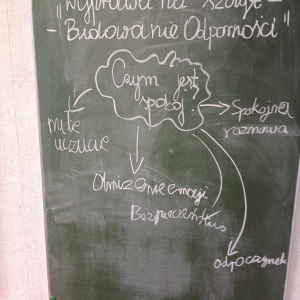 "Wyprawa na Szczyt -
- Budowanie Odporności"
Czym jest
spokój?
miłe
uczucie
Spokojna
rozmowa
Obniżenie emocji
Bezpieczeństwo
odpoczynek